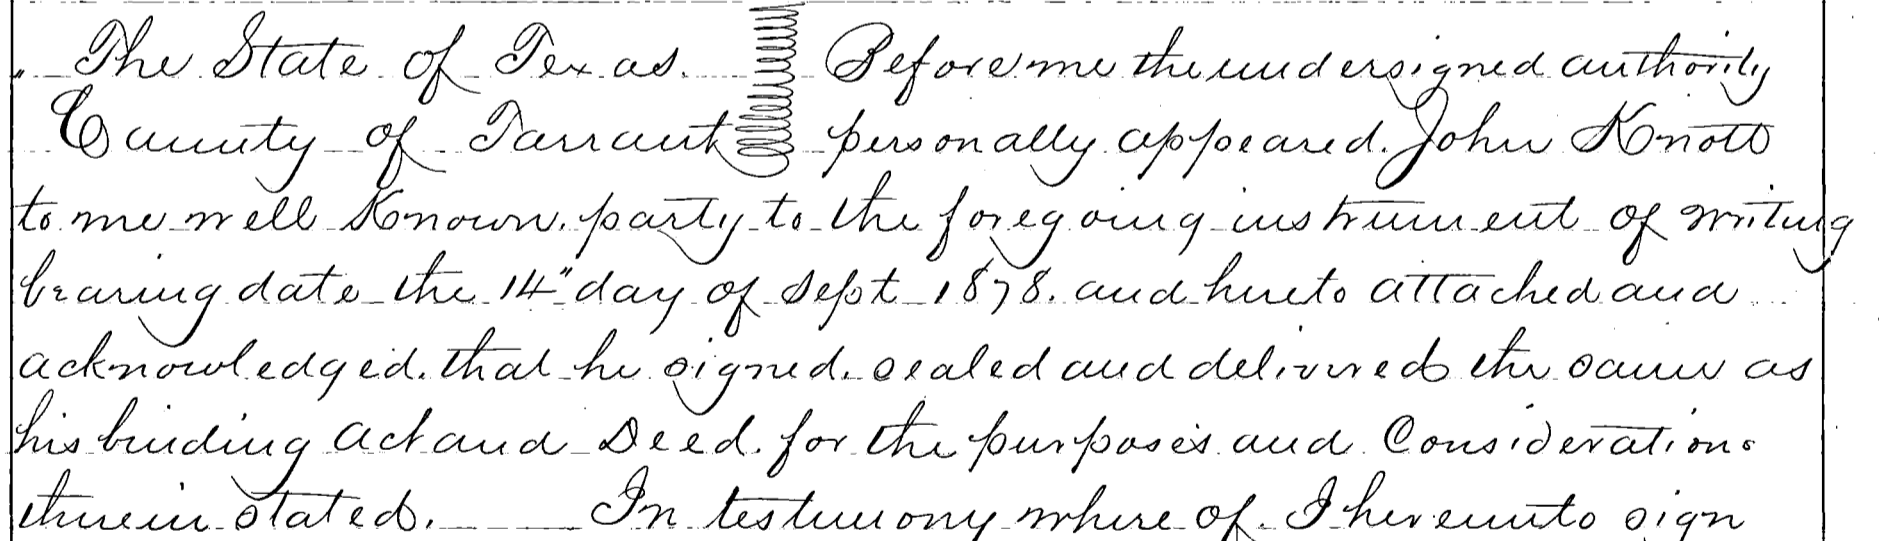 The State of Texas. Before me the undersigned authority
County of Tarrant personally appeared. John Knott
to me well Known. party to the foregoing instrument of writing
bearing date the 14" day of Sept 1878. and hereto attached and
acknowledged. that he signed. sealed and delivered the same as
his binding Act and Deed. for the purposes and Considerations
therein stated. In testimony where of. I hereunto sign